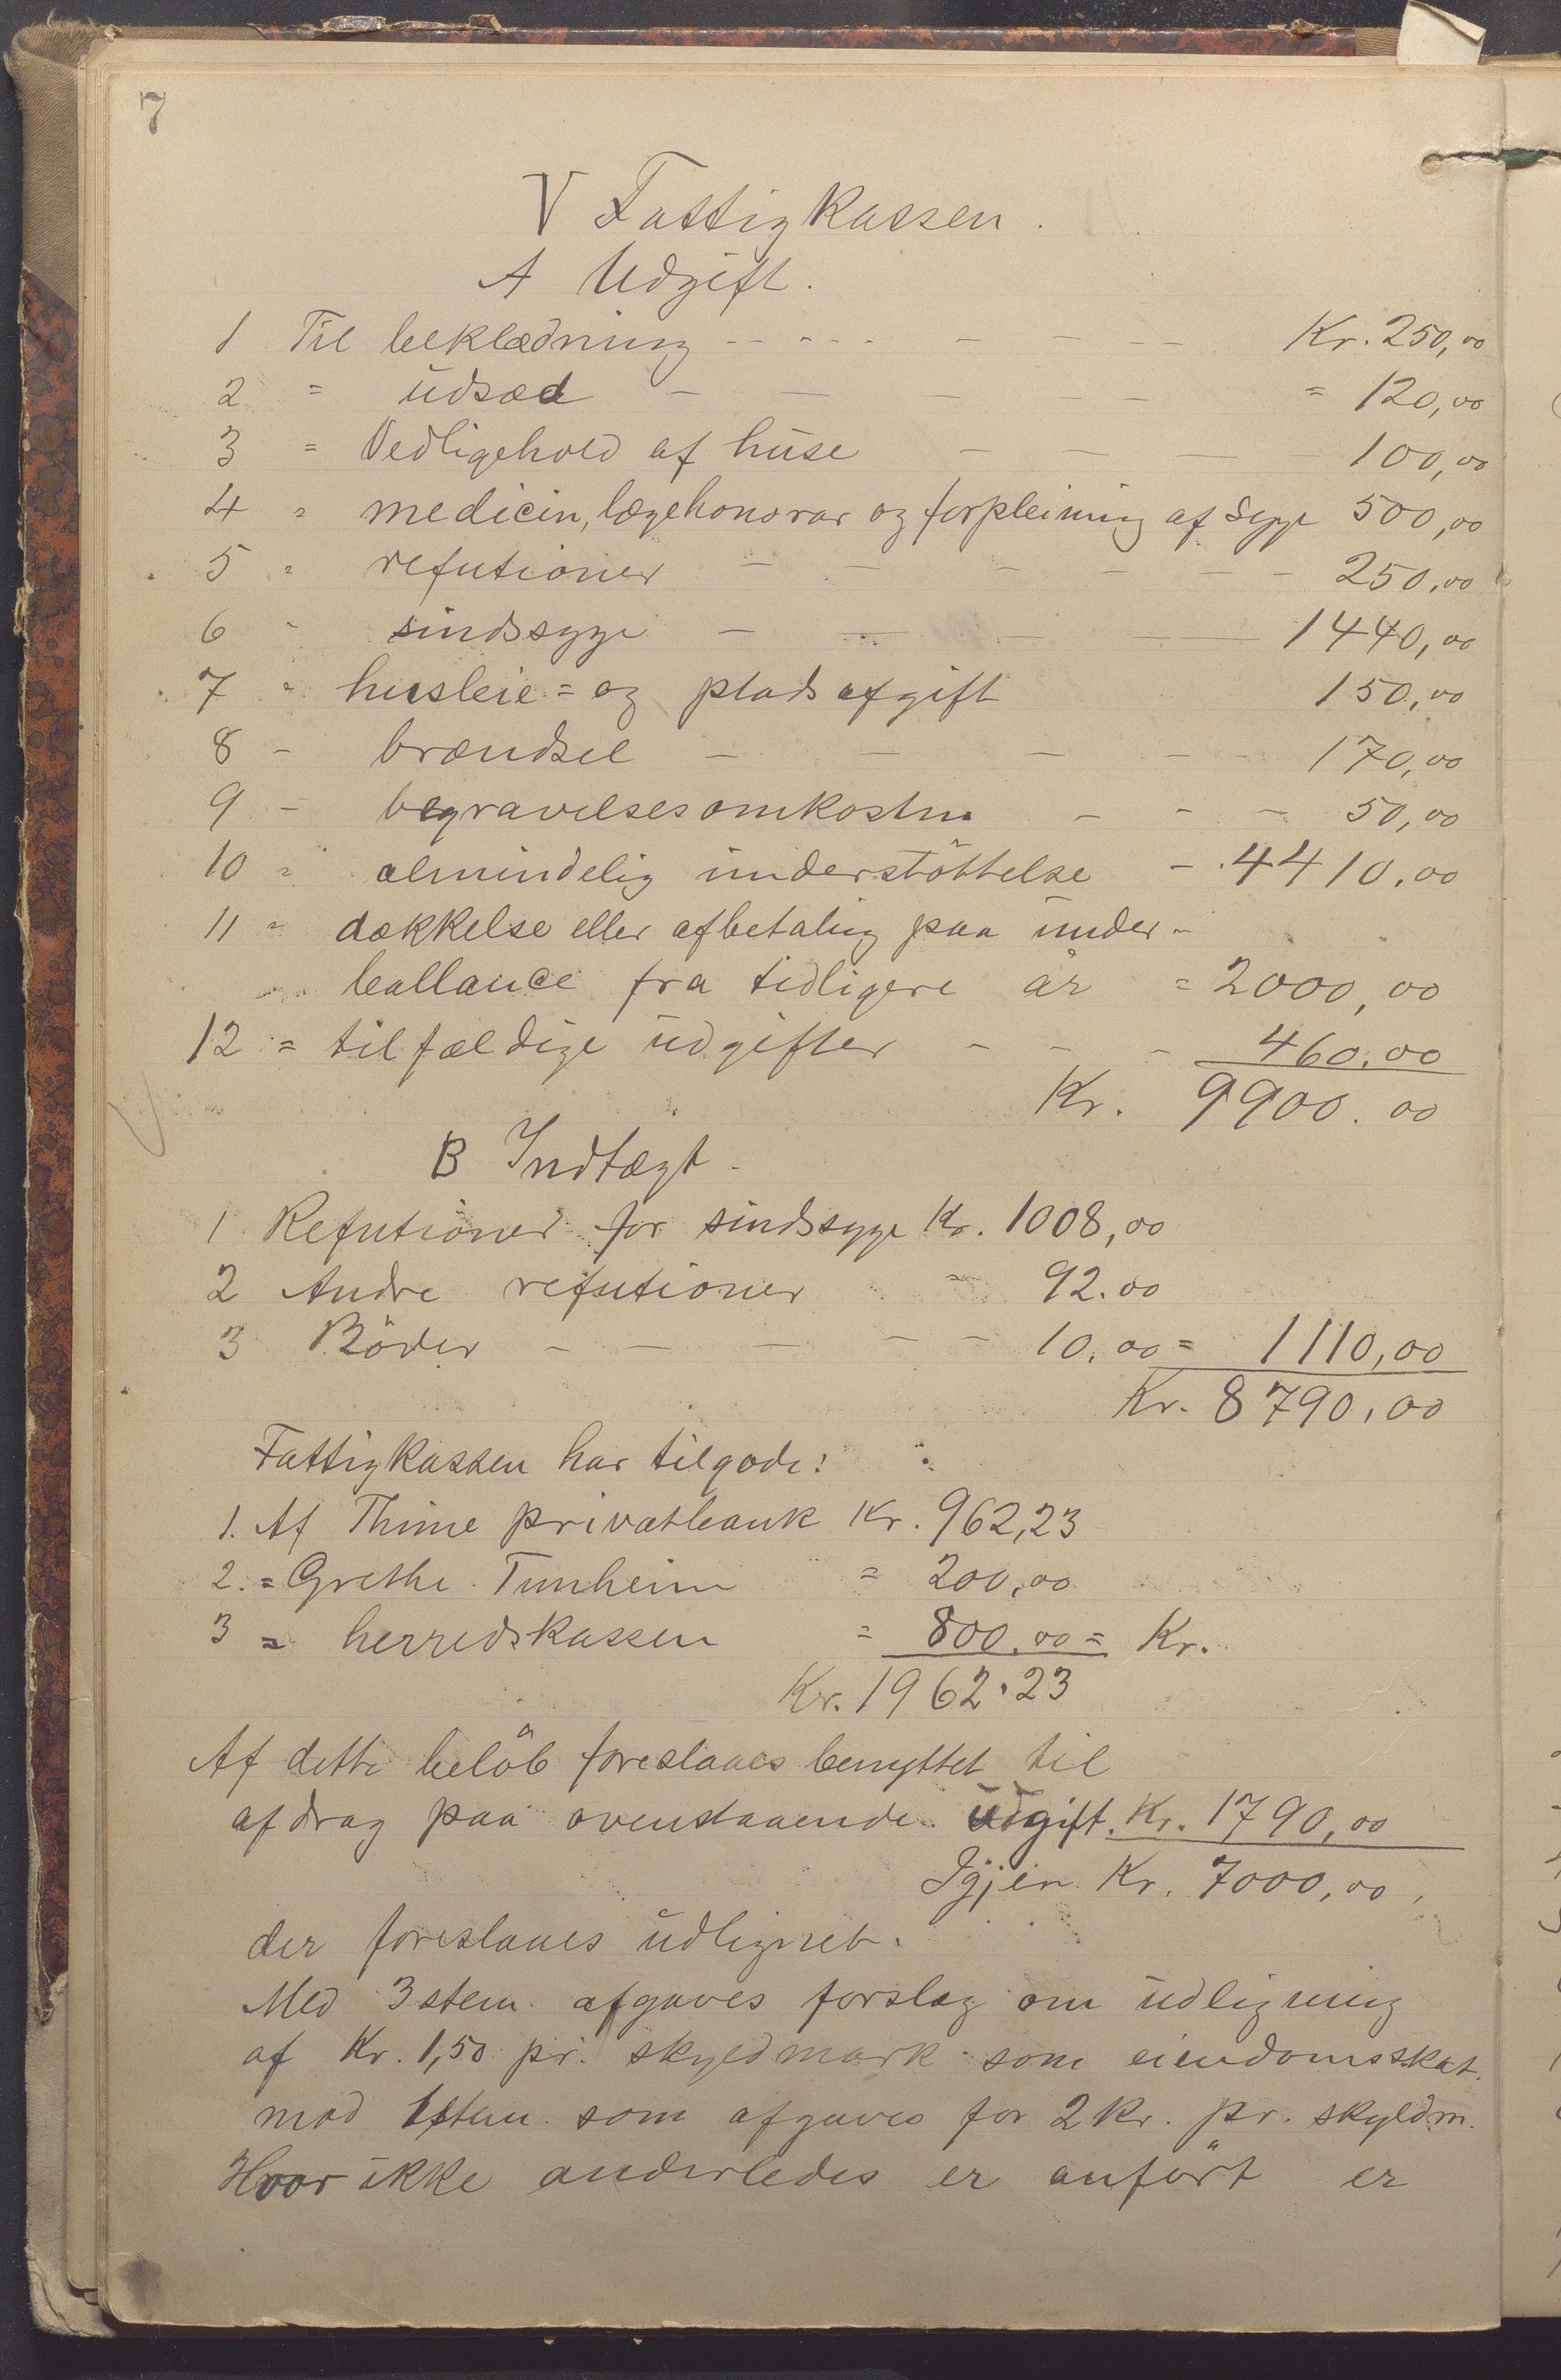 7
V Fattigkassen.
A Udgift.
1 Til beklædning - - - - - - - Kr. 250,00
2 = udsæd - - - - - = 120,00
3 = Vedligehold af huse - - - - 100,00
4 = medicin, lægehonorar og forpleining af syge 500,00
5 = refutioner - - - - - - 250,00
6 - sindssyge - - - - 1440,00
7 - husleie= og pladsafgift 150,00
8 - brændsel - - - - - 170,00
9 - begravelsesomkostn. - - - 50,00
10 = almindelig understöttelse - 4410,00
11 = dækkelse eller afbetaling paa under-
ballance fra tidligere år = 2000,00
12 = tilfældige udgifter - - - 460,00
Kr. 9900.00
B Indtægt.
1 Refutioner for sindssyge Kr. 1008,00
2 Andre refutioner = 92.00
3 Böder - - - - - 10,00 = 1110,00
Kr. 8790,00
Fattigkassen har tilgode:
1. Af Thime privatbank Kr. 962,23
2. = Grethe Tunheim = 200,00
3 = herredskassen = 800.00 = Kr.
Kr. 1962.23
Af dette belöb foreslaaes benyttet til
afdrag paa ovenstaaende udgift. Kr. 1790,00
Igjen Kr. 7000,00,
der foreslaaes udlignet.
Med 3 stem. afgaves forslag om udligning
af Kr. 1,50 pr. skyldmark som eiendomsskat.
mod 1 stem. som afgaves for 2 kr. pr. skyldm.
Hvor ikke anderledes er anfört er